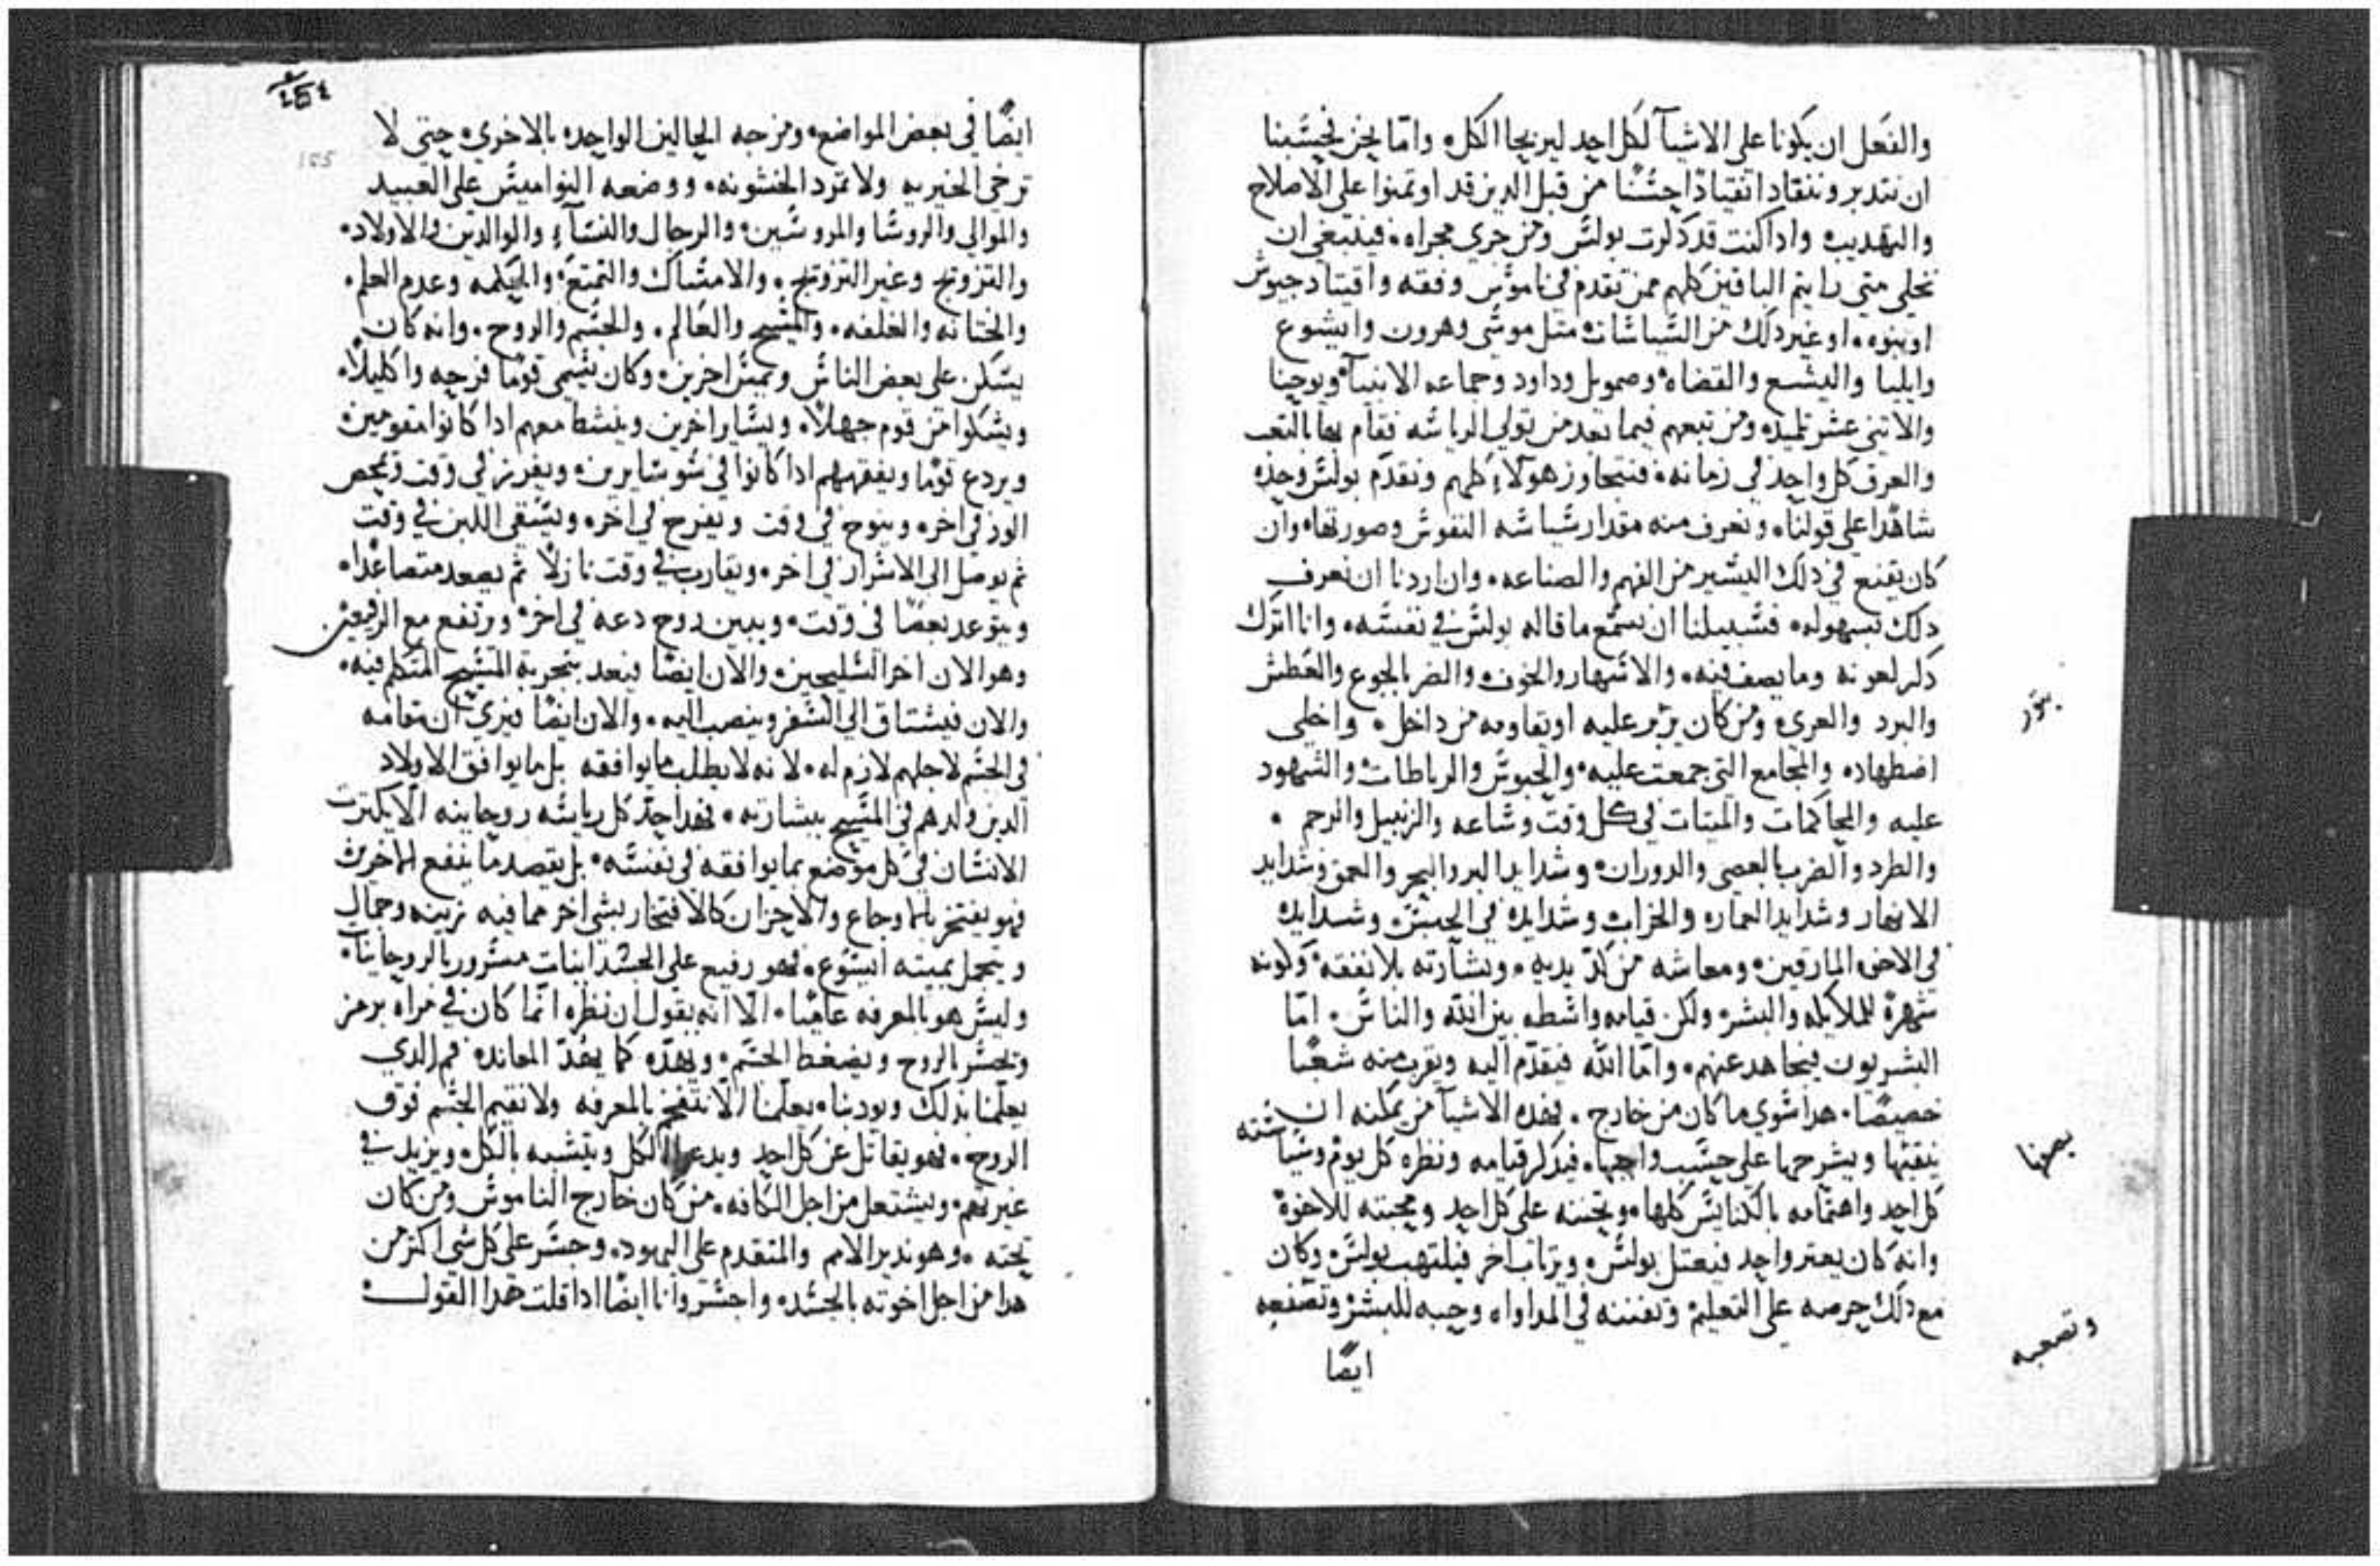 والفعل ان يكونا على الاشيآ لكل احد ليربحا الكل۰ وامّا نحن فحسبنا
ان نتدبر وننقاد انقيادًا حسنًا من قبل الدين قد اوتمنوا على الاصلاح
والتهديب۰ وادا كنت قد دكرت بولس ومن جرى مجراه۰ فينبغي ان
نخلي متى رايتم الباقين كلهم ممن تقدم في ناموس وفقه واقتياد جيوش
او بنوه۰ او غير دلك من السياسات متل موسى وهرون وايشوع
وايليا واليشع والقضاه وصمويل وداود وجماعه الانبيآ ويوحنا
والاتني عشر تلميده ومن تبعهم فيما بعد من تولي الرياسه فقام بها بالتعب
والعرق كل واحد في زمانه۰ فنتجاوز هولاء كلهم ونقدّم بولس وحده
شاهدًا على قولنا۰ ونعرف منه مقدار سياسه النفوس وصورتها۰ وان
كان يقنع في دلك اليسير من الفهم والصناعه۰ وان اردنا ان نعرف
دلك بسهوله۰ فسبيلنا ان نسمع ما قاله بولس في نفسه۰ وانا اترك
دكر لعونه وما يصف فيه۰ والاسهار والخوف والضر بالجوع والعطش
والبرد والعرى۰ ومن كان عليه او يقاومه من داخل۰ واخلي
اضطهاده والمجامع التي جمعت عليه۰ والحبوس والرباطات والشهود
عليه والمحاكمات والميتات في كل وقت وساعه والزبيل والرجم۰
والطرد والضرب بالعصي والدوران۰ وشدايد البر والبحر والعمق وشدايد
الانهار وشدايد العماره والخراب وشدايده في الجنس۰ وشدايده
في الاخوه المارقين۰ ومعاشه من كدّ يديه۰ وبشارته بلا نفقه۰ وكونه
شهرة للملايكه والبشر۰ ولكن قيامه واسطه بين الله والناس۰ امّا
البشريون فيجاهد عنهم۰ وامّا الله فيتقدّم اليه ويقرب منه شعبًا
خصيصًا۰ هدا سوى ما كان من خارج۰ فهده الاشيآ من يمكنه ان
يتقنها ويشرحها على حسب واجبها۰ فيدكر قيامه ونظره كل يوم وسياسته
كل احد واهتمامه بالكنايس كلها۰ وتحننه على كل احد ومحبته للاخوة
وانه كان يعتر واحد فيعتل بولس۰ ويرتاب اخر فيلتهب بولس۰ وكان
مع دلك حرصه على التعليم وتفننه في المداواه وحبه للبشر وتصنعه
ايضًا
بصفها
وتصعبه
ايضًا في بعض المواضع۰ ومزجه الحالين الواحده بالاخرى۰ حتى لا
ترخي الخيريه ولا تمرد الخشونه۰ ووضعه النواميس على العبيد
والموالي والروسا والمرووسين۰ والرجال والنسآء والوالدين والاولاد۰
والتزويج وغير التزويج۰ والامساك والتمتع۰ والحكمه وعدم العلم۰
والختانه والغلفه۰ والمسيح والعالم۰ والجسم والروح۰ وانه كان
يشكر على بعض الناس ويمس اخرين۰ وكان يسمي قومًا فرحه واكليلًا۰
ويشكوا من قوم جهلًا۰ ويساير اخرين وينشط معهم ادا كانوا مقومين۰
ويردع قومًا ويقهرهم ادا كانوا في سو سايرين۰ ويفرز في وقت ويمحص
الود في اخره وينوح في وقت ويفرح في اخره ويسقي اللبن في وقت
ثم يوصل الى الاسرار في اخر۰ ويقارب في وقت نازلًا ثم يصعد متصاعدًا۰
ويتوعد بعصًا في وقت۰ ويبين روح دعه في اخر۰ ويرتفع مع الرفيعين۰
وهو الان اخر السليحين۰ والان ايضًا فيعد بتجربة المسيح المتكلم فيه۰
والان فيشتاق الى السفر وينصب اليه۰ والان ايضًا فيرى ان مقامه
في الجسم لاجلهم لازم له۰ لانه لا يطلب ما يوافقه بل ما يوافق الاولاد
الدين ولدهم في المسيح ببشارته۰ فهدا حدّ كل رياسه روحانيه الّا يكترت
الانسان في كل موضع بما يوافقه في نفسه۰ بل يقصد ما ينفع الاخرين
فهو يفتخر بالاوجاع والاحزان كالافتخار بشى اخر مما فيه تزينه وجمال
ويتجمل بميته ايسوع۰ فهو رفيع على الجسدانيات مسرور بالروحانيات۰
وليس هو بالمعرفه عاميًا۰ الّا انه يقول ان نظره انّما كان في مراه برمز
وتجسر بالروح ويضغط الجسم۰ ويهدّه كما يهدّ المعانده فمن الدي
يعلّمنا بدلك ويودبنا۰ يعلّمنا الّا ننتفخ بالمعرفه ولا نقيم الجسم فوق
الروح۰ فهو يقاتل عن كل احد ويدعوا الكل ويتشبه بالكل۰ ويزيد في
غيرتهم۰ ويشتعل من اجل الكافه۰ من كان خارج الناموس ومن كان
تحته۰ وهو ندير الامم والمتقدم على اليهود۰ وجسر على كل شى اكتر من
هدا من اجل اخوته بالجسد۰ واجسر وانا ايضًا ادا قلت هدا القول